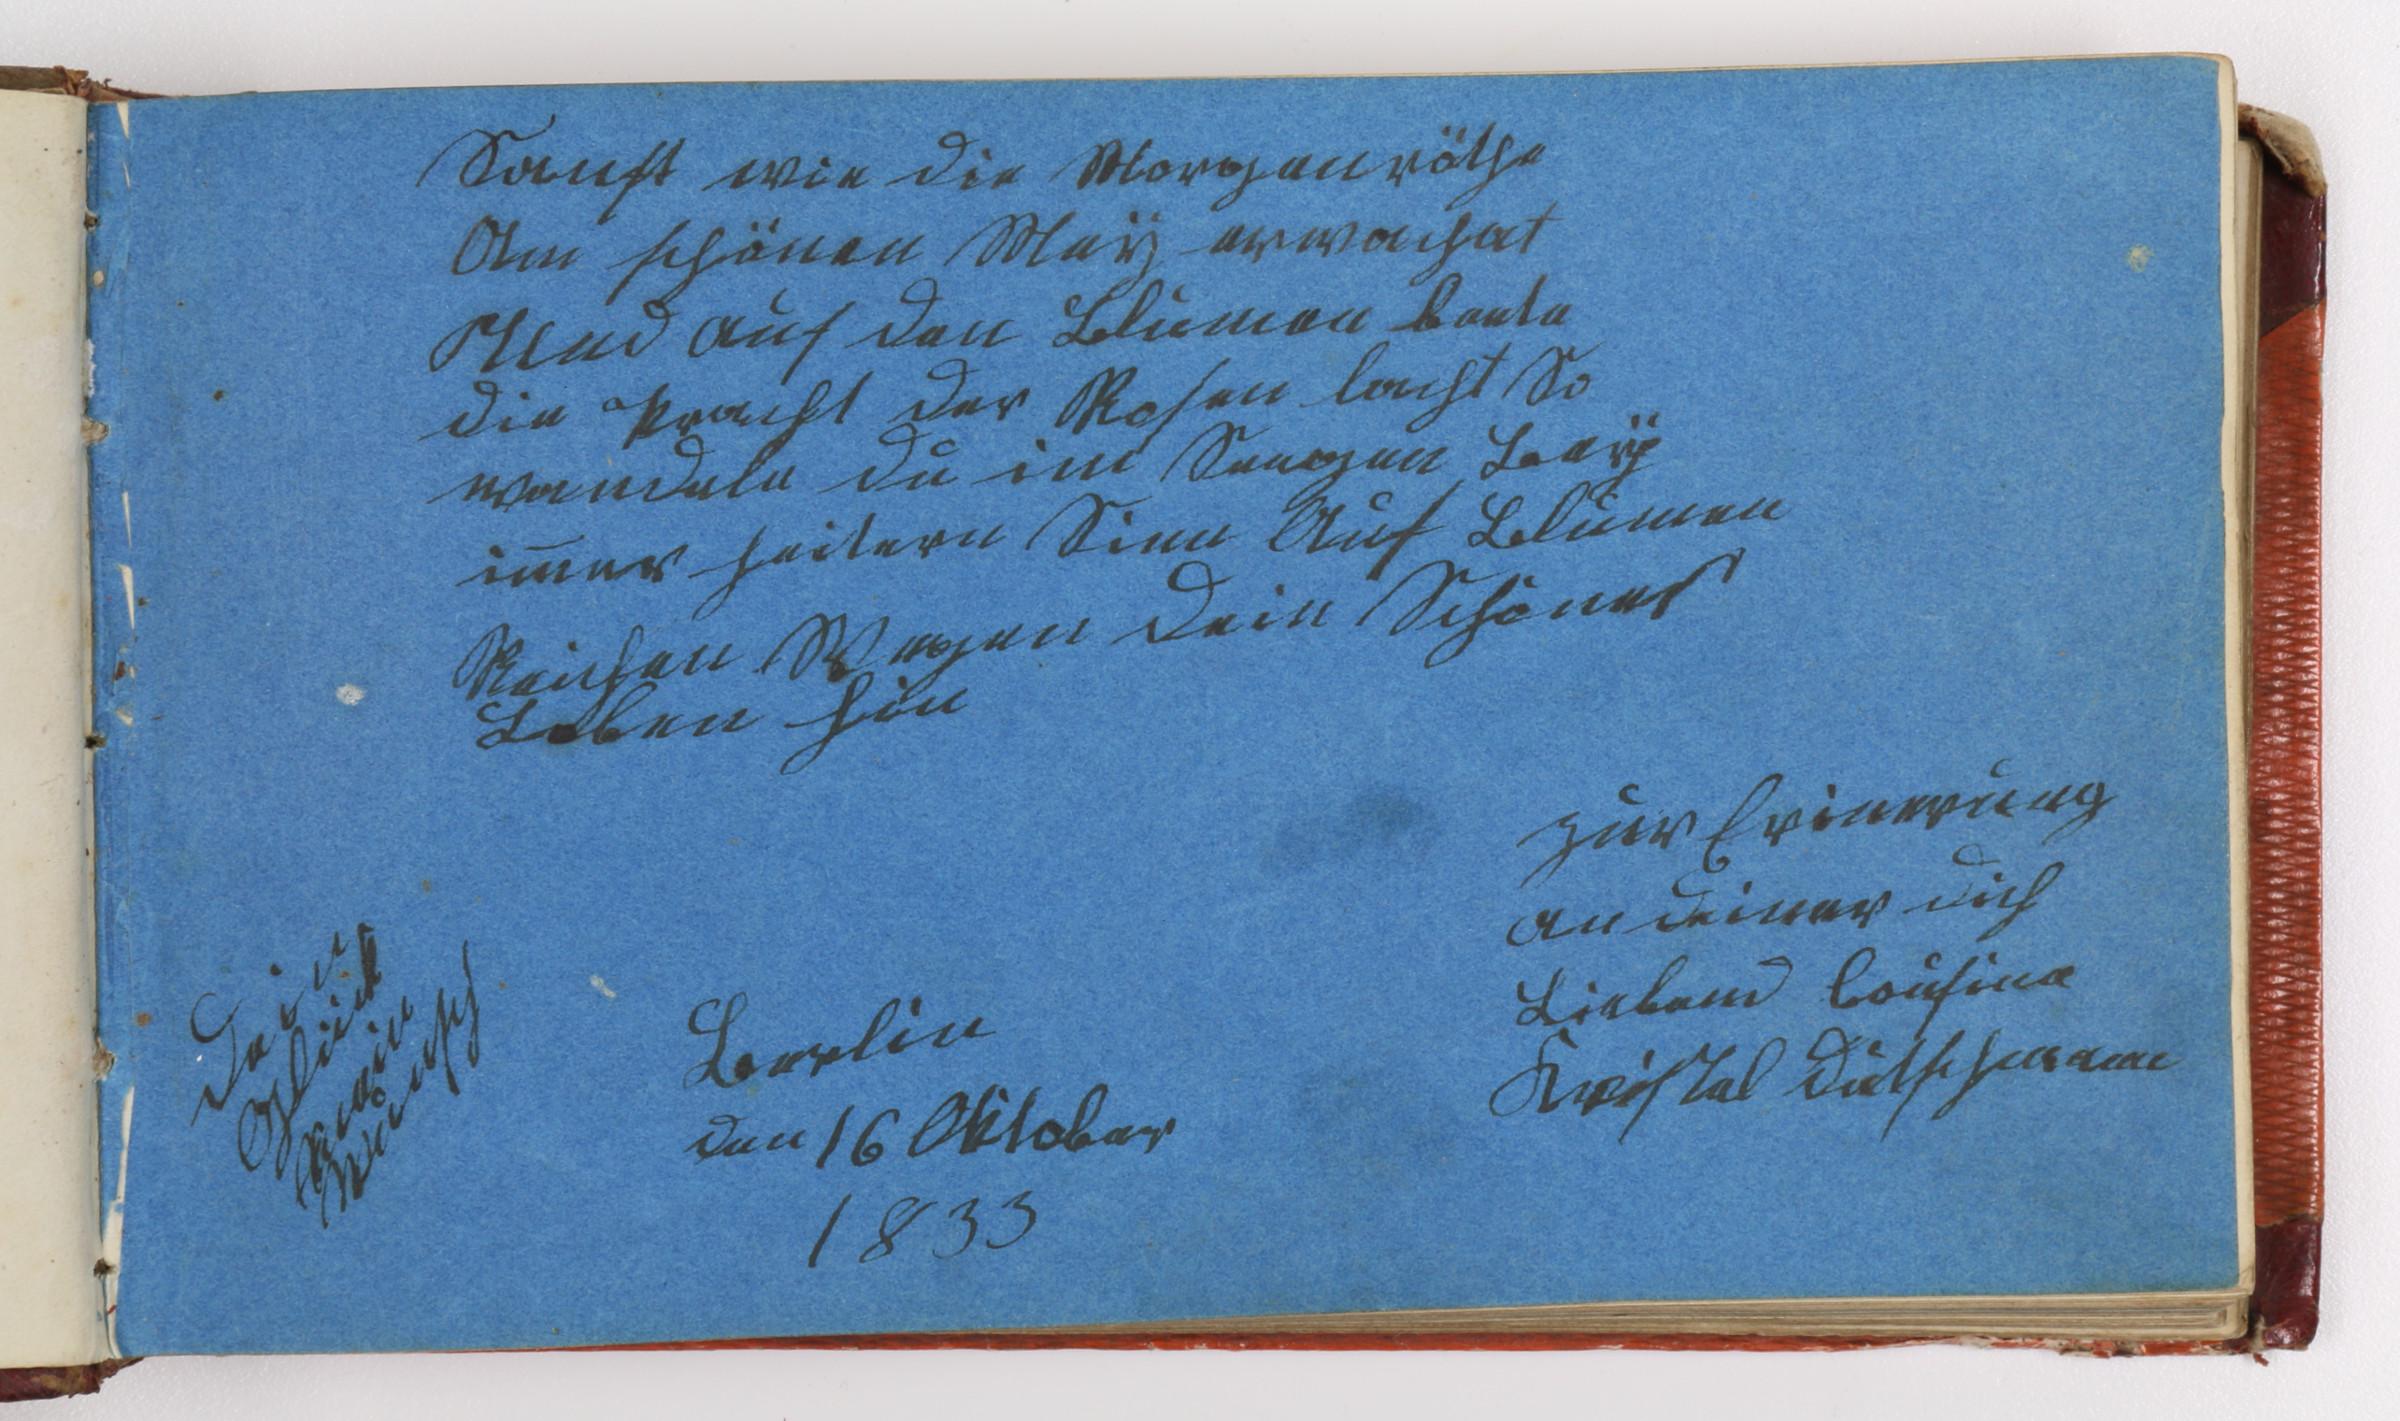 Sanft wie die Morgenröthe
Am schönen Maÿ erwachet
Und auf den Blumen beete
die Pracht der Rosen lacht So
wandele du im Seegen Beÿ
im̄er heitern Sinn Auf Blumen
Reichen Wegen dein Schönes
Leben hin
zur Erinerung
an deiner dich
Liebend Cousine
Kristel
Berlin
den 16 Oktober
1833
Dein
Glück
mein
Wunsch